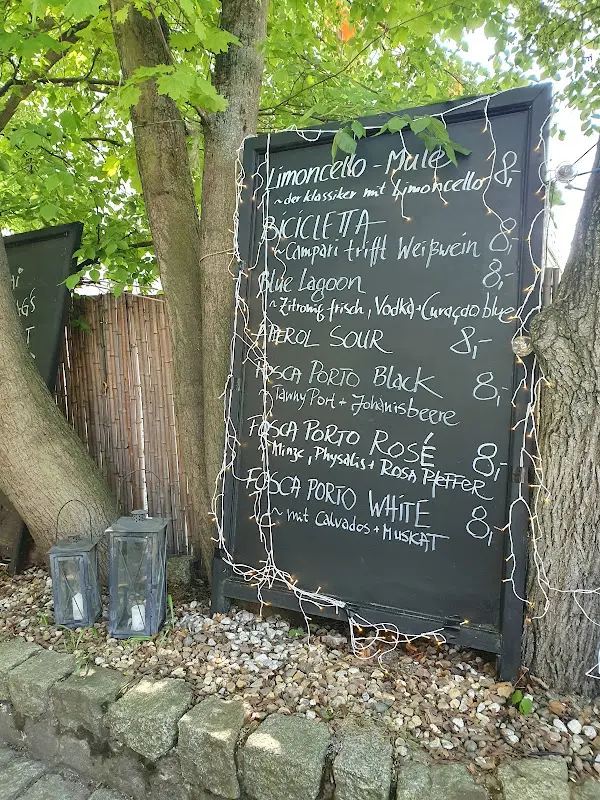 Limoncello - Mule 8,-
~ der klassiker mit Limoncello
BiCiCLETTA 8,-
~ Campari trifft Weißwein
Blue Lagoon 8,-
~ Zitronig, frisch, Vodka + Curaçao blue
APEROL SOUR 8,-
FOSCA PORTO Black 8,-
Tawny Port + Johanisbeere
FOSCA PORTO ROSÉ 8,-
Minze, Physalis + ROSA PFEFFER
FOSCA PORTO WHITE 8,-
~ mit Calvados + MUSKAT